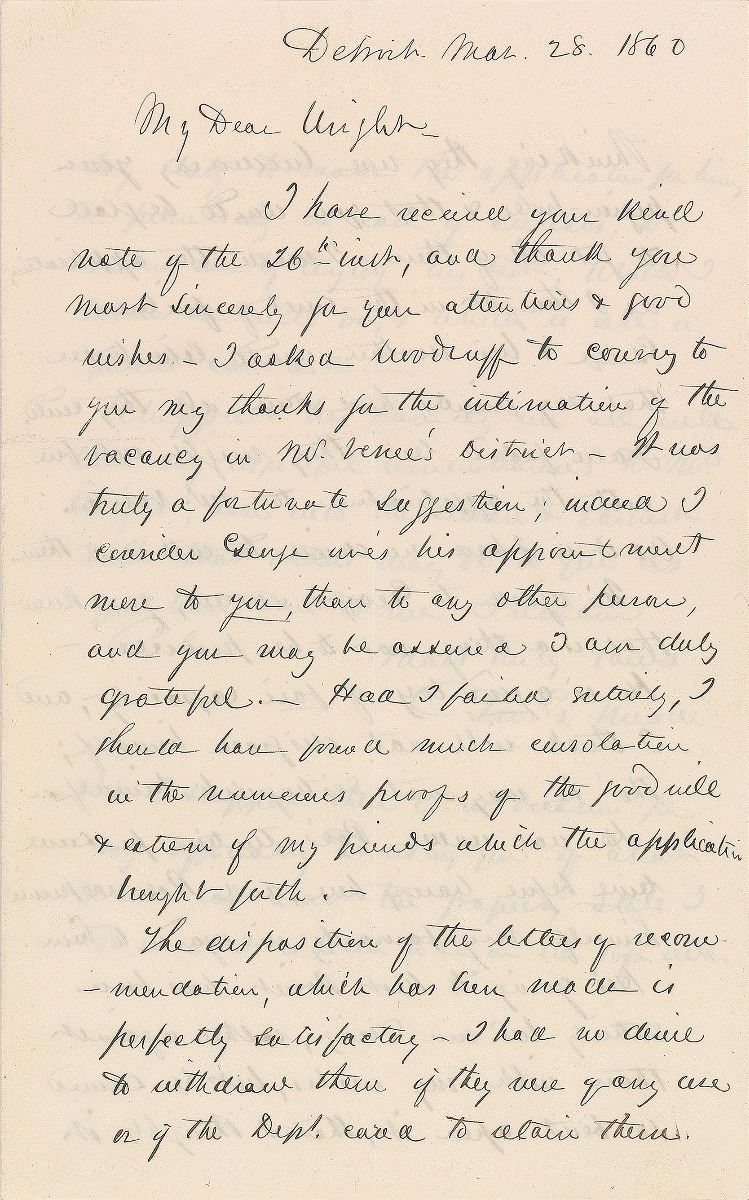 Detroit Mar. 28. 1860
My Dear Wright—
I have received your kind
note of the 26th inst, and thank you
most sincerely for your attentions & good
wishes.— I asked Woodruff to convey to
you my thanks for the intimation of the
vacancy in Mr. District— It was
truly a fortunate suggestion; indeed I
consider George owes his appointment
more to you, than to any other person,
and you may be assured I am duly
grateful.— Had I failed entirely, I
should have found much consolation
in the numerous proofs of the good will
& esteem of my friends which the application
brought forth.—
The disposition of the letters of recom-
-mendation, which has been made is
perfectly satisfactory— I had no desire
to withdraw them if they were of any use
or if the Dept. cared to retain them.